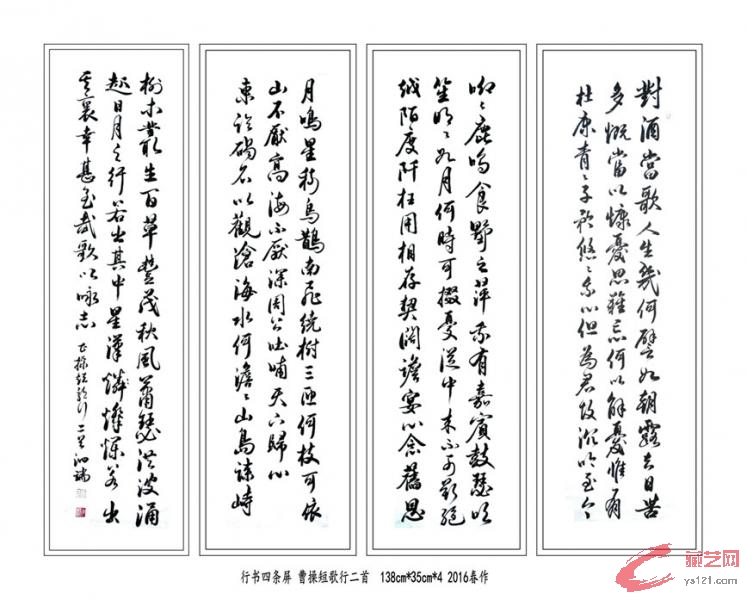 對酒當歌人生幾何譬如朝露去日苦
多慨當以慷憂思難忘何以解憂惟有
杜康青々子衿悠々我心但為君故沉吟至今
呦々鹿鳴食野之苹我有嘉賓鼓瑟吹
笙明々如月何時可掇憂從中來不可斷絕
越陌度阡枉用相存契闊談宴心念舊恩
月鳴星稀烏鵲南飛繞樹三匝何枝可依
山不厭高海不厭深周公吐哺天下歸心
東臨碣石以觀滄海水何澹々山島竦峙
樹木叢生百草豐茂秋風蕭瑟洪波涌
起日月之行若出其中星漢燦爛若出
其裏幸甚至哉歌以咏志 曹操短歌行二首
行书四条屏 曹操短歌行二首 138cm*35cm*4 2016春作
藏艺网
ys121.com